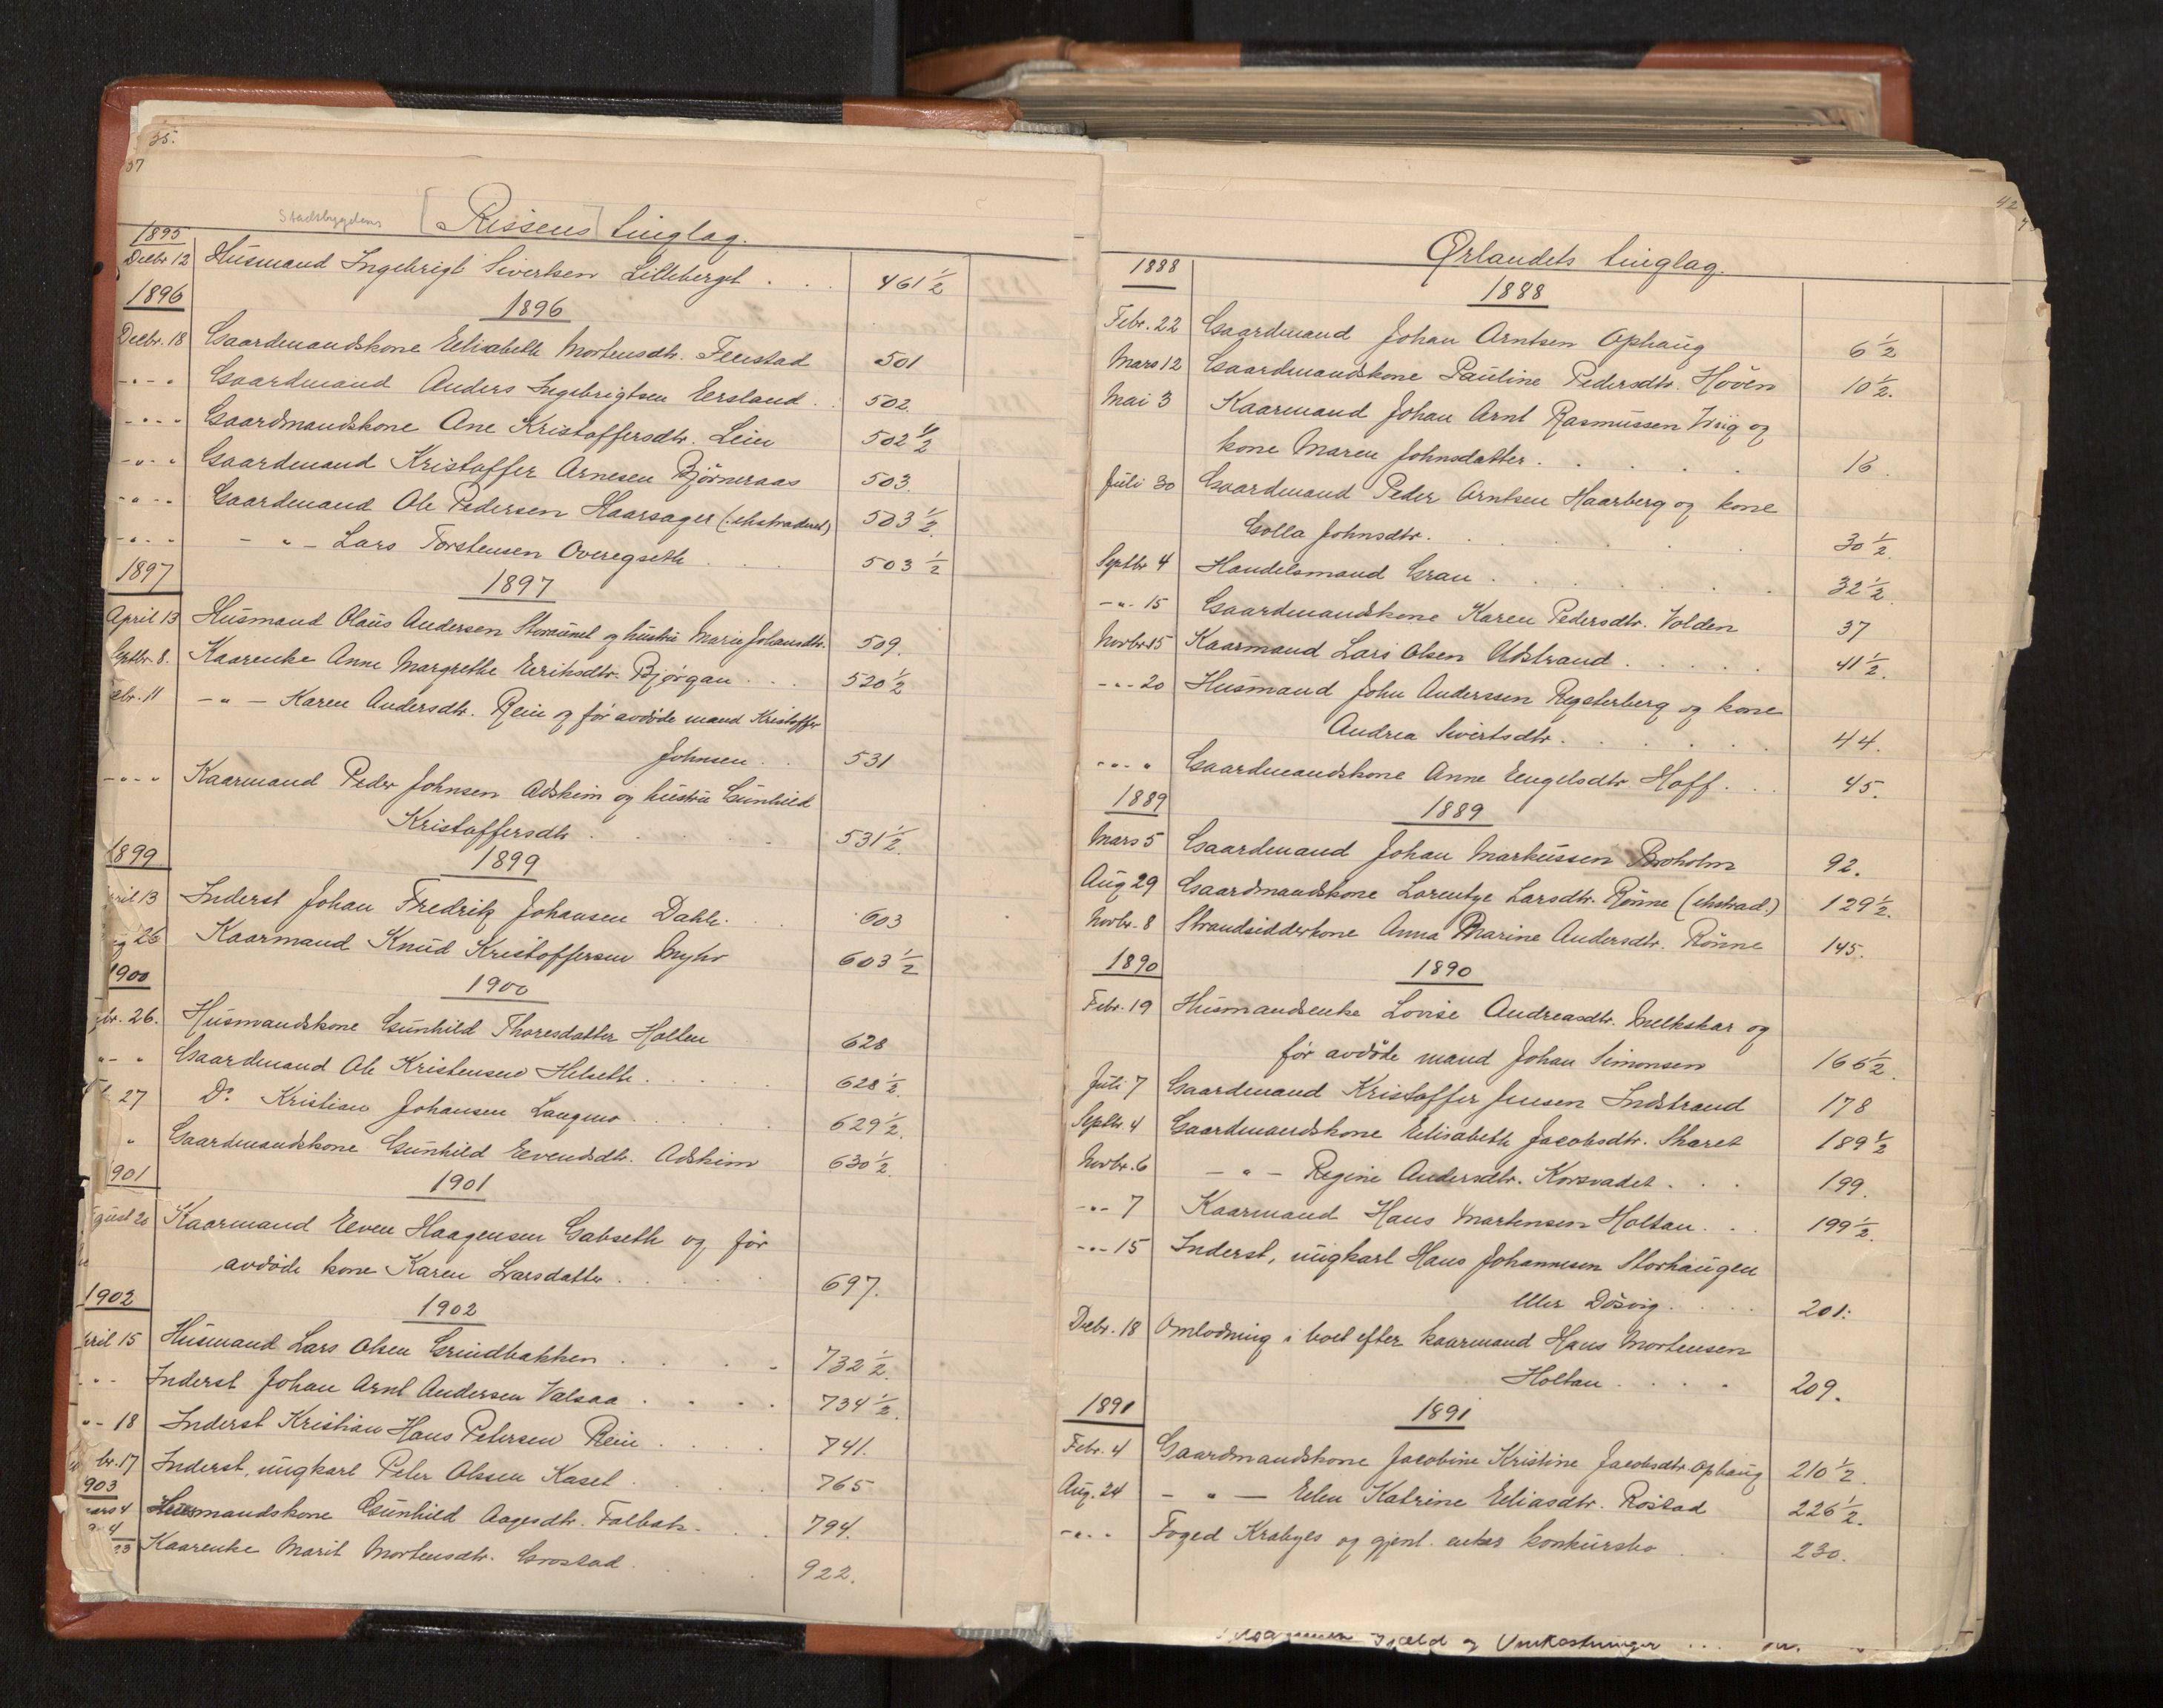 35.
37
Stadsbygdens [Rissens] tinglag.
1895
Decbr 12 Husmand Ingebrigt Sivertsen Lilleberget . . . 461 1/2
1896 1896
Decbr. 18 Gaardmandskone Elisabeth Mortensdtr. Fenstad 501
-"-" Gaardmand Anders Ingebrigtsen Eersland . . 502.
-"-" Gaardmandskone Ane Kristoffersdtr. Lein 502 1/2
-"-" Gaardmand Kristoffer Arnesen Bjørneraas 503.
-"-" Gaardmand Ole Pedersen Haarsager (:ekstraderet) 503 1/2.
-"-" - " - Lars Torstensen Overegseth . . . . 503 1/2
1897 1897
April 13 Husmand Olaus Andersen og hustru Marie Johansdtr. 509.
Septbr. 8. Kaarenke Anne Margrethe Eeriksdtr. Bjørgan . . . 520 1/2
ebr. 11 - " - Karen Andersdtr. Rein og før avdøde mand Kristoffer
Johnsen . . 531
-"-" Kaarmand Peder Johnsen Adskim og hustru Gunhild
Kristoffersdtr . . . . . 531 1/2.
1899 1899
pril 13 Inderst Johan Fredrik Johansen Dahle. . 603
ug 26 Kaarmand Knud Kristoffersen Myhr 603 1/2
1900 1900
br. 26. Husmandskone Gunhild Thoresdatter Hollen 628
"-" Gaardmand Ole Kristensen Helseth . . . . 628 1/2.
27 Do. Kristian Johansen Langmo . . . . . 629 1/2.
" Gaardmandskone Gunhild Eevendsdtr. Adskim 630 1/2.
1901 1901
gust 20 Kaarmand Eeven Haagensen Gabseth og før
avdøde kone Karen Larsdatter . . . . . 697.
1902 1902
pril 15 Husmand Lars Olsen Grindbakken . . . . . 732 1/2.
-"- Inderst Johan Arnt Andersen Valsaa . . . . 734 1/2.
"- 18 Inderst Kristian Hans Petersen Rein . . . . 741.
br. 17 Inderst, ungkarl Peter Olsen Kaset . . . . . 765
903
ars 4 Husmandskone Gunhild Aagesdtr. Falbak . . . 794.
4/23 Kaarenke Marit Mortensdtr. Grostad . . . . 922.
42
Ørlandets tinglag.
1888 1888
Febr. 22 Gaardmand Johan Arntsen Ophaug 6 1/2
Mars 12 Gaardmandskone Pauline Pedersdtr. Hovën 10 1/2.
Mai 3 Kaarmand Johan Arnt Rasmussen Viig og
kone Maren Johnsdatter . . . . . 16.
Juli 30 Gaardmand Peder Arntsen Haarberg og kone
Golla Johnsdtr. . . . . . . 30 1/2.
Septbr 4 Handelsmand Gran . . . . . . . 32 1/2.
-"- 15 Gaardmandskone Karen Pedersdtr. Volden 37
Novbr 15 Kaarmand Lars Olsen Adstrand . . . . . 41 1/2.
-"- 20 Husmand John Anderssen Regsterberg og kone
Andrea Sivertsdtr. . . . . . . 44.
-"-" Gaardmandskone Anne Eengelsdtr. Hoff . . . 45.
1889 1889
Mars 5 Gaardmand Johan Markussen Broholm 92.
Aug 29 Gaardmandskone Lorentze Larsdtr. Rønne (ekstrad.) 129 1/2.
Novbr. 8 Strandsidderkone Anna Marine Andersdtr. Rønne 145.
1890 1890
Febr. 19 Husmandsenke Lovise Andreasdtr. Melkskar og
før avdøde mand Johan Simonsen 166 1/2.
Juli 7 Gaardmand Kristoffer Jensen Indstrand 178
Septbr. 4 Gaardmandskone Elisabeth Jacobsdtr. Skaret 189 1/2
Novbr. 6 - " - Regine Andersdtr. Korsvadet . . . 199.
-"- 7 Kaarmand Hans Martensen Holtan . . . 199 1/2.
-"- 15 Inderst, ungkarl Hans Johannesen Storhaugen
eller Døsvig . . . . 201.
Decbr. 18 Omlodning i boet efter kaarmand Hans Mortensen
Holtan . . . . 209.
1891 1891
Febr. 4 Gaardmandskone Jacobine Kristine Jacobsdtr Ophaug 210 1/2.
Aug. 24 - " - Elen Katrine Eeliasdtr. Røstad 226 1/2.
-"-" Foged Krabyes og gjenl. enkes konkursbo . . 230.
Gjæld og Omkostninger . . .